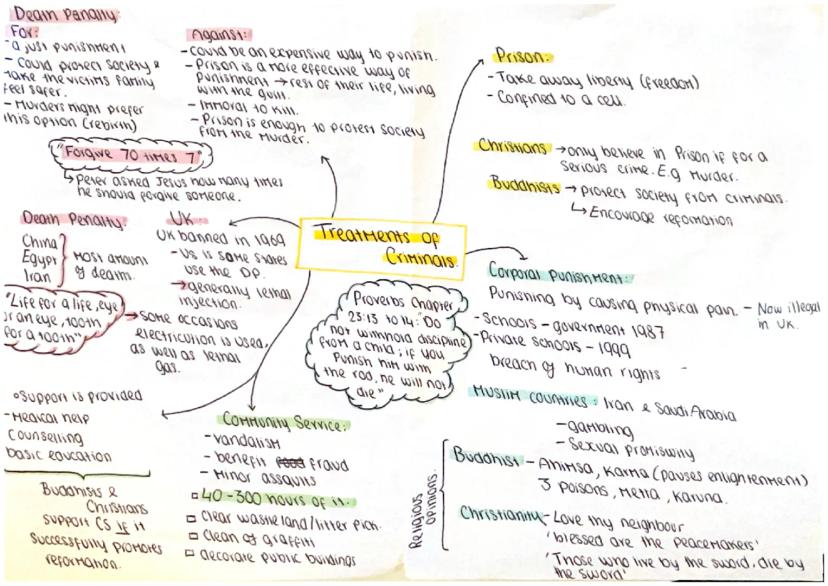 Death Penalty:
For:
- a just punishment
- Could protect society &
make the victims family
feel safer.
- Murders might prefer
this option (rebirth)
Against:
- Could be an expensive way to punish.
- Prison is a more effective way of
Punishment → rest of their life, living
with the guilt.
- Immoral to kill.
- Prison is enough to protect society
from the Murder.
"Forgive 70 times 7"
↳ Peter asked Jesus how many times
he should forgive someone.
Death Penalty:
China
Egypt
Iran
Most amount
of death.
"Life for a life, eye
for an eye, tooth
for a tooth"
UK:
UK banned in 1969
- US is some states
use the DP.
→ generally lethal
injection.
→ some occasions
electricution is used,
as well as lethal
gas.
Treatments of
Criminals.
Prison:
- Take away liberty (freedom)
- Confined to a cell.
Christians → only believe in Prison if for a
serious crime. E.g Murder.
Buddhists → protect society from criminals.
↳ Encourage reformation
Corporal Punishment:
Punishing by causing physical pain. - Now illegal
in UK.
- Schools - government 1987
- Private schools - 1999
breach of human rights -
Muslim countries: Iran & Saudi Arabia
- gambling
- Sexual promiscuity
Religious
opinions.
Buddhist - Ahimsa, Karma (pauses enlightenment)
3 poisons, Metta, Karuna.
Christianity - Love thy neighbour
'blessed are the peacemakers'
'Those who live by the sword, die by
the sword'
Proverbs Chapter
23:13 to 14: "Do
not withhold discipline
from a child; if you
Punish him with
the rod, he will not
die"
Support is provided
- Medical help
Counselling
basic education
Buddhists &
Christians
support CS if it
successfully promotes
reformation.
Community Service:
- vandalism
- benefit fraud
- Minor assaults
□ 40-300 hours of it.
□ Clear wasteland/litter pick.
□ Clean of graffiti
□ decorate public buildings